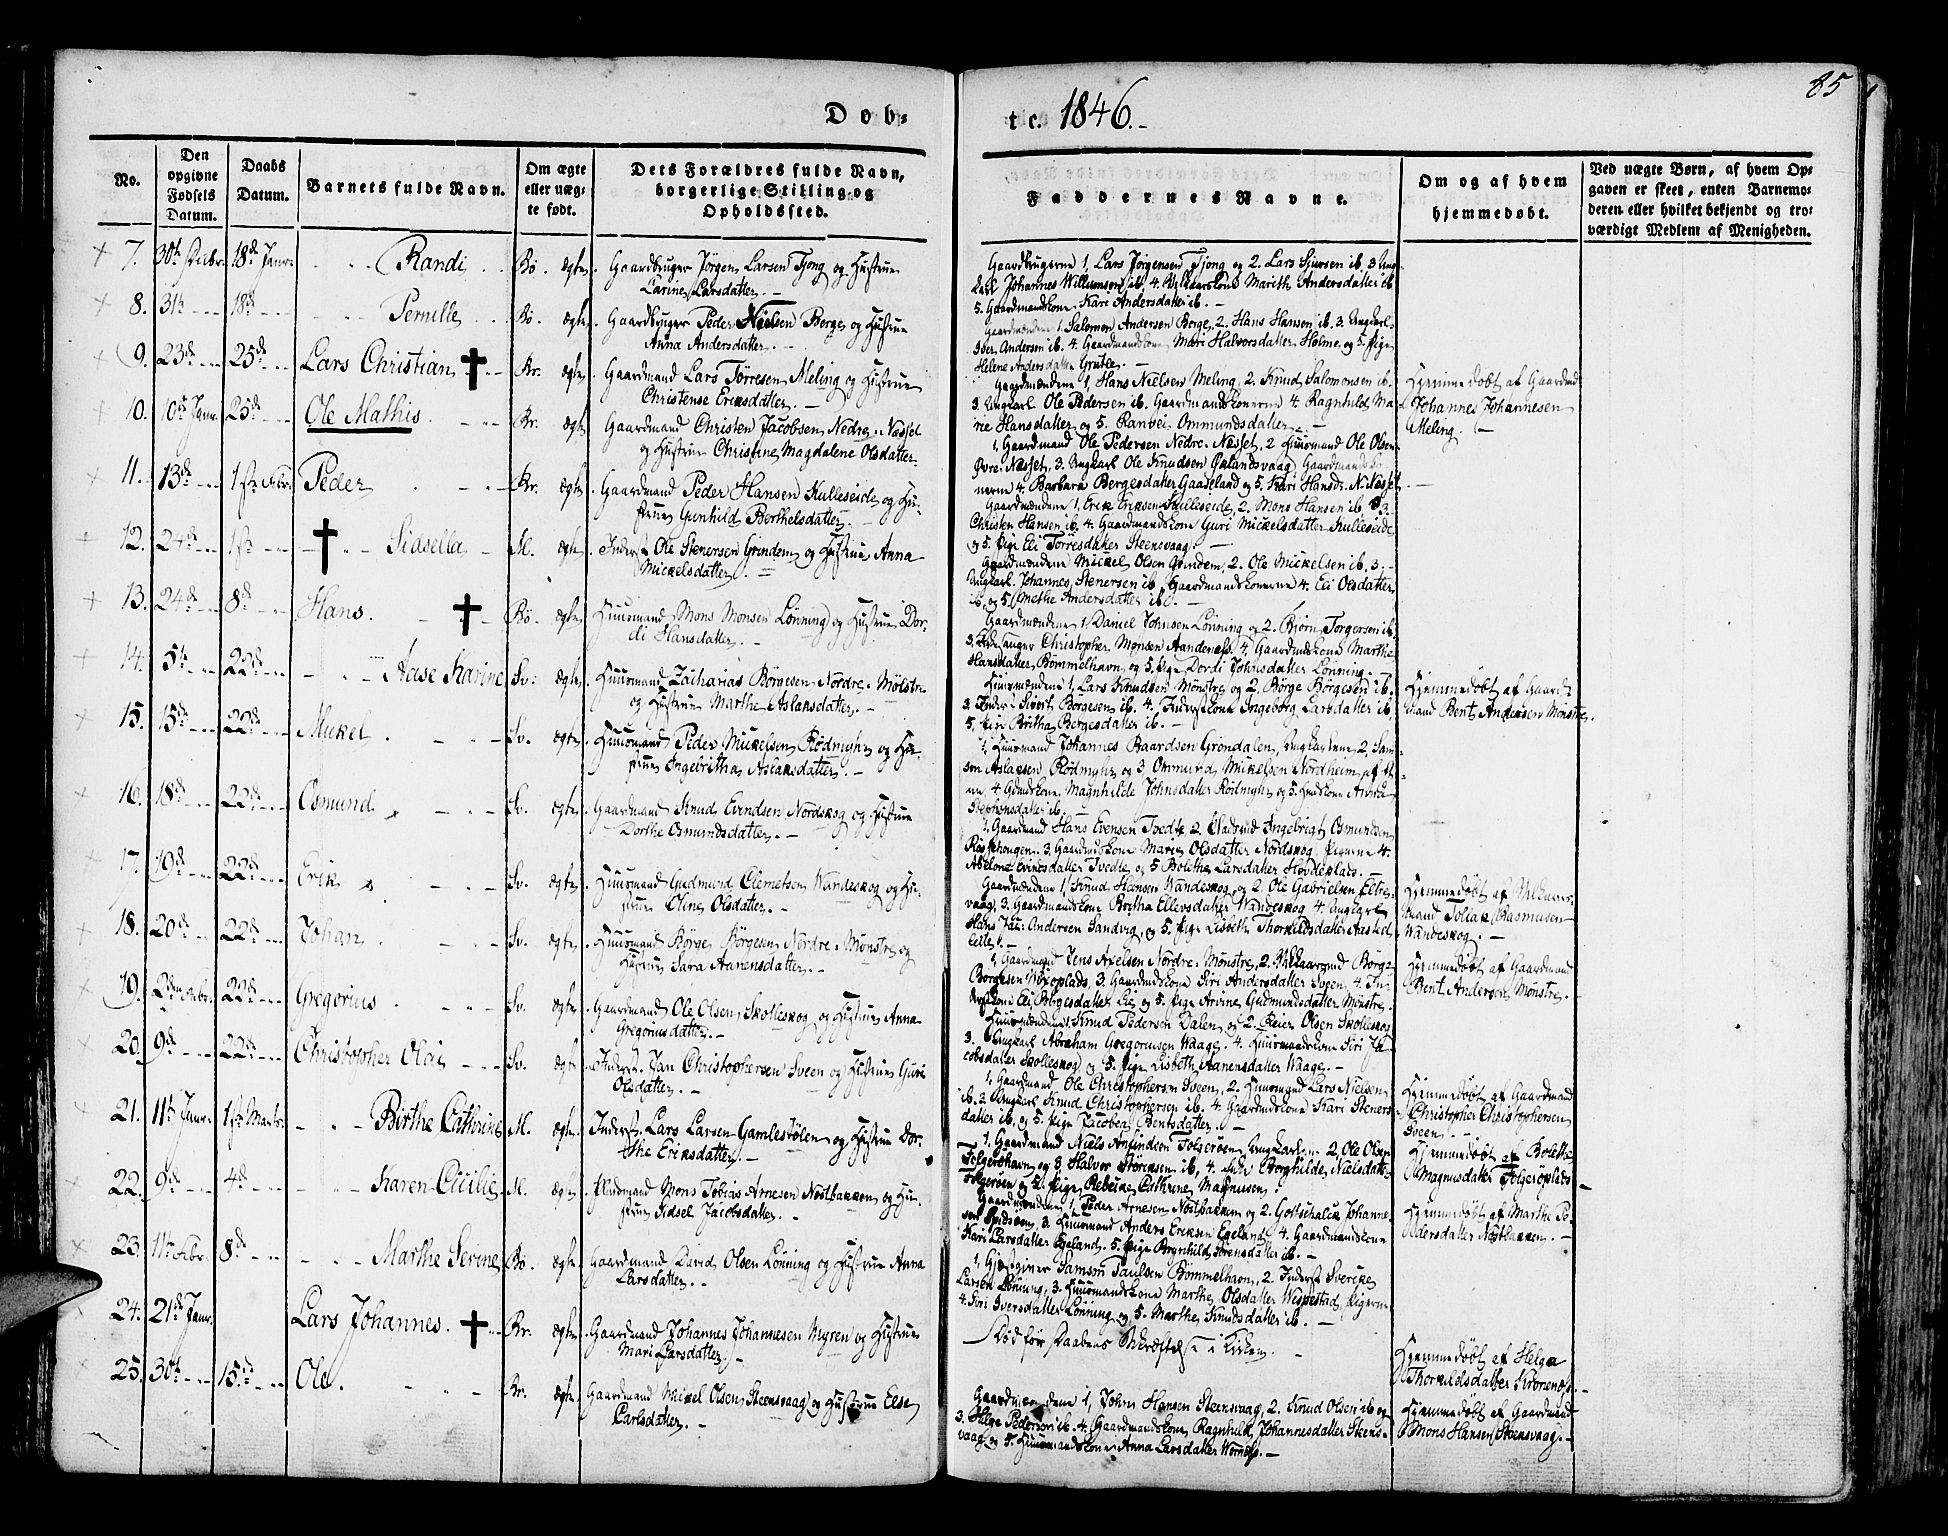 Dob=
te. 1846.-
85
No.
Den
opgivne
Fødsels
Datum.
Daabs
Datum.
Barnets fulde Navn.
Om ægte
eller uæg-
te født.
Dets Forældres fulde Navn,
borgerlige Stilling og
Opholdssted.
Faddernes Navne.
Om og af hvem
hjemmedøbt.
Ved uægte Børn, af hvem Op-
gaven er skeet, enten Barnemo-
deren eller hvilket bekjendt og tro-
værdigt Medlem af Menigheden.
7. 30te Decbr. 18de Janr. Randi Bø. ægte. Gaardbruger Jörgen Larsen Tjong og Hustrue
Larine Larsdatter. -
Gaardbrugerne 1, Lars Jörgensen Tjong og 2. Lars Sjursen ib. 3 Ung-
karl Johannes Willumsen ib. 4. Marith Andersdatter ib
5. Gaardmandskone Kari Andersdatter ib. -
8. 31te 18de Pernille Bø. ægte. Gaardbruger Peder Nielsen Berge og Hustrue
Anna Andersdatter. -
Gaardmændene 1. Salomon Andersen Berge, 2. Hans Hansen ib. 3. Ungkarl
Iver Andersen ib. 4. Gaardmandskone Mari Halvorsdatter Holme, og 5. Pige
Helene Andersdatter Grutle. -
9. 23de 25de Lars Christian Br. ægte. Gaardmand Lars Törresen Meling og Hustrue
Christense Eriksdatter. -
Gaardmændene 1, Hans Nielsen Meling, 2. Knud Salomonsen ib.
3. Ungkarl Ole Pedersen ib. Gaardmandskonerne 4. Ragnhild Ma-
rie Hansdatter og 5. Ranvei Ommundsdatter. -
Hjemmedøbt af Gaardmd
Johannes Johannesen
Meling. -
10. 10de Janr. 25de Ole Mathis Br. ægte. Gaardmand Christen Jacobsen Nedre-Næsset
og Hustrue Christine Magdalene Olsdatter.
1. Gaardmand Ole Pedersen Nedre-Næsset, 2 Huusmand Ole Olsen
Øvre-Næsset, 3. Ungkarl Ole Knudsen Ørlandsvaag Gaardmandsko-
nerne 4. Barbara Bergesdatter Gaaseland og 5. Kari Hansdr. N. Næsset
11. 13de 1ste Febr. Peder Br. ægte. Gaardmand Peder Hansen Kulleseide og Hu-
strue Gunhild Berthelsdatter. -
Gaardmændene 1, Erik Eriksen Kulleseide, 2. Mons Hansen ib 3.
Christen Hansen ib. 4. Gaardmandskone Guri Mickelsdatter Kulleseide
og 5. Pige Eli Törresdatter Steensvaag. -
12. 24de 1ste Sidsella M. ægte. Inderst Ole Stenersen Grindem og Hustrue Anna
Mickelsdatter. -
Gaardmændene Mickel Olsen Grindem, 2. Ole Mickelsen ib. 3.
Ungkarl. Johannes Stenersen ib. Gaardmandskonerne 4. Eli Olsdatter
ib. og 5. Methe Andersdatter ib. -
13. 24de 8de Hans. Bø. ægte. Huusmand Mons Monsen Lönning og Hustrue Dor-
di Hansdatter. -
Gaardmændene 1. Daniel Johnsen Lönning og 2. Bjørn Torgersen ib.
3. Christopher Monsen Aandenæs. 4. Gaardmdskone Marthe
Hansdatter Bömmelhavn og 5. Pige Dordi Johnsdatter Lönning. -
14. 5te 22de Aase Karine Sv. ægte. Huusmand Zacharias Börgesen Nordre-Mölstre
og Hustrue Marthe Aslaksdatter. -
Huusmændene 1. Lars Knudsen Mönstre og 2. Börge Börgesen ib.
3. Inderst Sivert Borgesen ib. 4. Inderstkone Ingeborg Larsdatter ib.
5. Pige Britha Bergesdatter ib. -
Hjemmedøbt af Gaard-
mand Bent Andersen Mönstre.
15. 15de 22de Mickel Sv. ægte. Huusmand Peder Mickelsen Rödmyhr og Hu-
strue Ingebritha Aslaksdatter. -
1. Huusmand Johannes Baardsen Gröndalen, Ungkarlene 2. Sam-
son Aslaksen Rödmyhr og 3 Ommund Mikelsen Nordheim,
4 Gdmdskone Magnhilde Johnsdatter Rödmyhr og 5.
Stephensdatter ib. -
16. 18de 22de Osmund Sv. ægte. Gaardmand Knud Evindsen Nordskog og Hustrue
Dorthe Osmundsdatter. -
1. Gaardmand Hans Evensen Tvedte 2. Ingebrigt Osmundsen
3. Gaardmdskone Marie Olsdatter Nordskog. Pigerne 4.
Abelone Evindsdatter Tvedte og 5 Bolethe Larsdatter Hovdeplads. -
17. 19de 22de Erik Sv. ægte. Huusmand Gudmund Clemetsen Vandeskog og Hu-
strue Oline Olsdatter. -
Gaardmændene 1, Knud Hansen Vandeskog, og 2. Ole Gabrielsen Eltre-
vaag, 3. Gaardmandskone Britha Ellersdatter Vandeskog 4. Ungkarl
Hans Jac: Andersen Sandvig, og 5. Pige Lisbeth Thorkildsdatter Aasled-
leite. -
Hjemmedøbt af
mand Tollak Rasmusen
Wandeskog. -
18. 20de 22de Johan Sv. ægte. Huusmand Börge Börgesen Nordre-Mönstre og
Hustrue Sara Aanensdatter. -
1. Gaardmand Jens Axelsen Nordre-Mönstre, 2. Börge
Borgesen 3. Gaardmdskone Siri Andersdatter Sveen, 4. In-
derstkone Eli Börgesdatter Lie, og 5. Pige Arvine Gudmundsdatter Mönstre.
Hjemmedøbt af Gaardmand
Bent Andersen Mönstre.
19. 2den Febr. 22de Gregorius Sv. ægte. Gaardmand Ole Olsen Skolleskog og Hustrue Anna
Gregoriusdatter. -
Huusmændene 1. Knud Pedersen Dalen, og 2. Reier Olsen Skolleskog
3. Ungkarl Abraham Gregoriussen Waage. 4. Huusmandskone Siri Ja-
cobsdatter Skolleskog og 5. Pige Lisbeth Aanensdatter Waage. -
20. 9de 22de Christopher Olai Sv. ægte. Inderst Jan Christophersen Sveen og Hustrue Guri
Olsdatter. -
1. Gaardmand Ole Christophersen Sveen, 2. Huusmand Lars Nielsen
ib. 3. Ungkarl Knud Christophersen ib. 4. Gaardmdskone Kari Steners-
datter ib. og 5. Pige Jacobea Bentsdatter. -
Hjemmedøbt af Gaardmand
Christopher Christophersen
Sveen. -
21. 11te Janr. 1ste Marts. Birthe Cathrine M. ægte. Inderst Lars Larsen Gamlestölen og Hustrue Dor-
the Eriksdatter. -
1. Gaardmand Niels Anfindsen Folgeröen, Ungkarlene 2, Ole Olsen
Folgeröhavn og 3. Halvor Störksen ib. 4. Borghilde Nielsdatter
Folgeröen og 5. Pige Rebekke Cathrine Magnusen.
Hjemmedøbt af Bolethe
Magnusdatter Folgeröplads
22. 9de 4de Karen Cicilie M. ægte. Mons Tobias Arnesen Nöstbakken og Hu-
strue Sidsel Jacobsdatter. -
Gaardmændene 1. Peder Arnesen Nöstbakken og 2. Gotschalck Johanne-
sen 3. Huusmand Anders Eriksen Eqeland, 4. Gaardmandskone
Kari Larsdatter Egeland. 5. Pige Brynhild Sörensdatter ib. -
Hjemmedøbt af Marthe Pe-
dersdatter Nöstbakken. -
23. 11te Febr. 8de Marthe Serine Bø. ægte. Gaardmand David Olsen Lönning og Hustrue Anna
Larsdatter. -
1. Gjæstgiver Samson Paulsen Bömmelhavn, 2. Inderst Sverike
Larsen Lönning, 3. Huusmandskone Marthe Olsdatter Wespestad, Pigerne
4. Siri Iversdatter Lönning og 5. Marthe Knudsdatter ib. -
24. 21de Janr. Lars Johannes. Br. ægte. Gaardmand Johannes Johannesen Myren og Hustrue
Mari Larsdatter. -
Död för Daabens Bekræftelse i Kirken. -
Hjemmedøbt af Helga
Thorkildsdatter
25. 30te 15de Ole. Br. ægte. Gaardmand Mickel Olsen Steensvaag og Hustrue Else
Carlsdatter. -
Gaardmændene 1, John Hansen Steensvaag, 2. Knud Olsen ib og
3. Helge Pedersen ib. 4. Gaardmandskone Ragnhild Johannesdatter Steens-
vaag, og 5. Huusmandskone Anna Larsdatter
Hjemmedøbt af Gaardmand
Mons Hansen Steensvaag. -